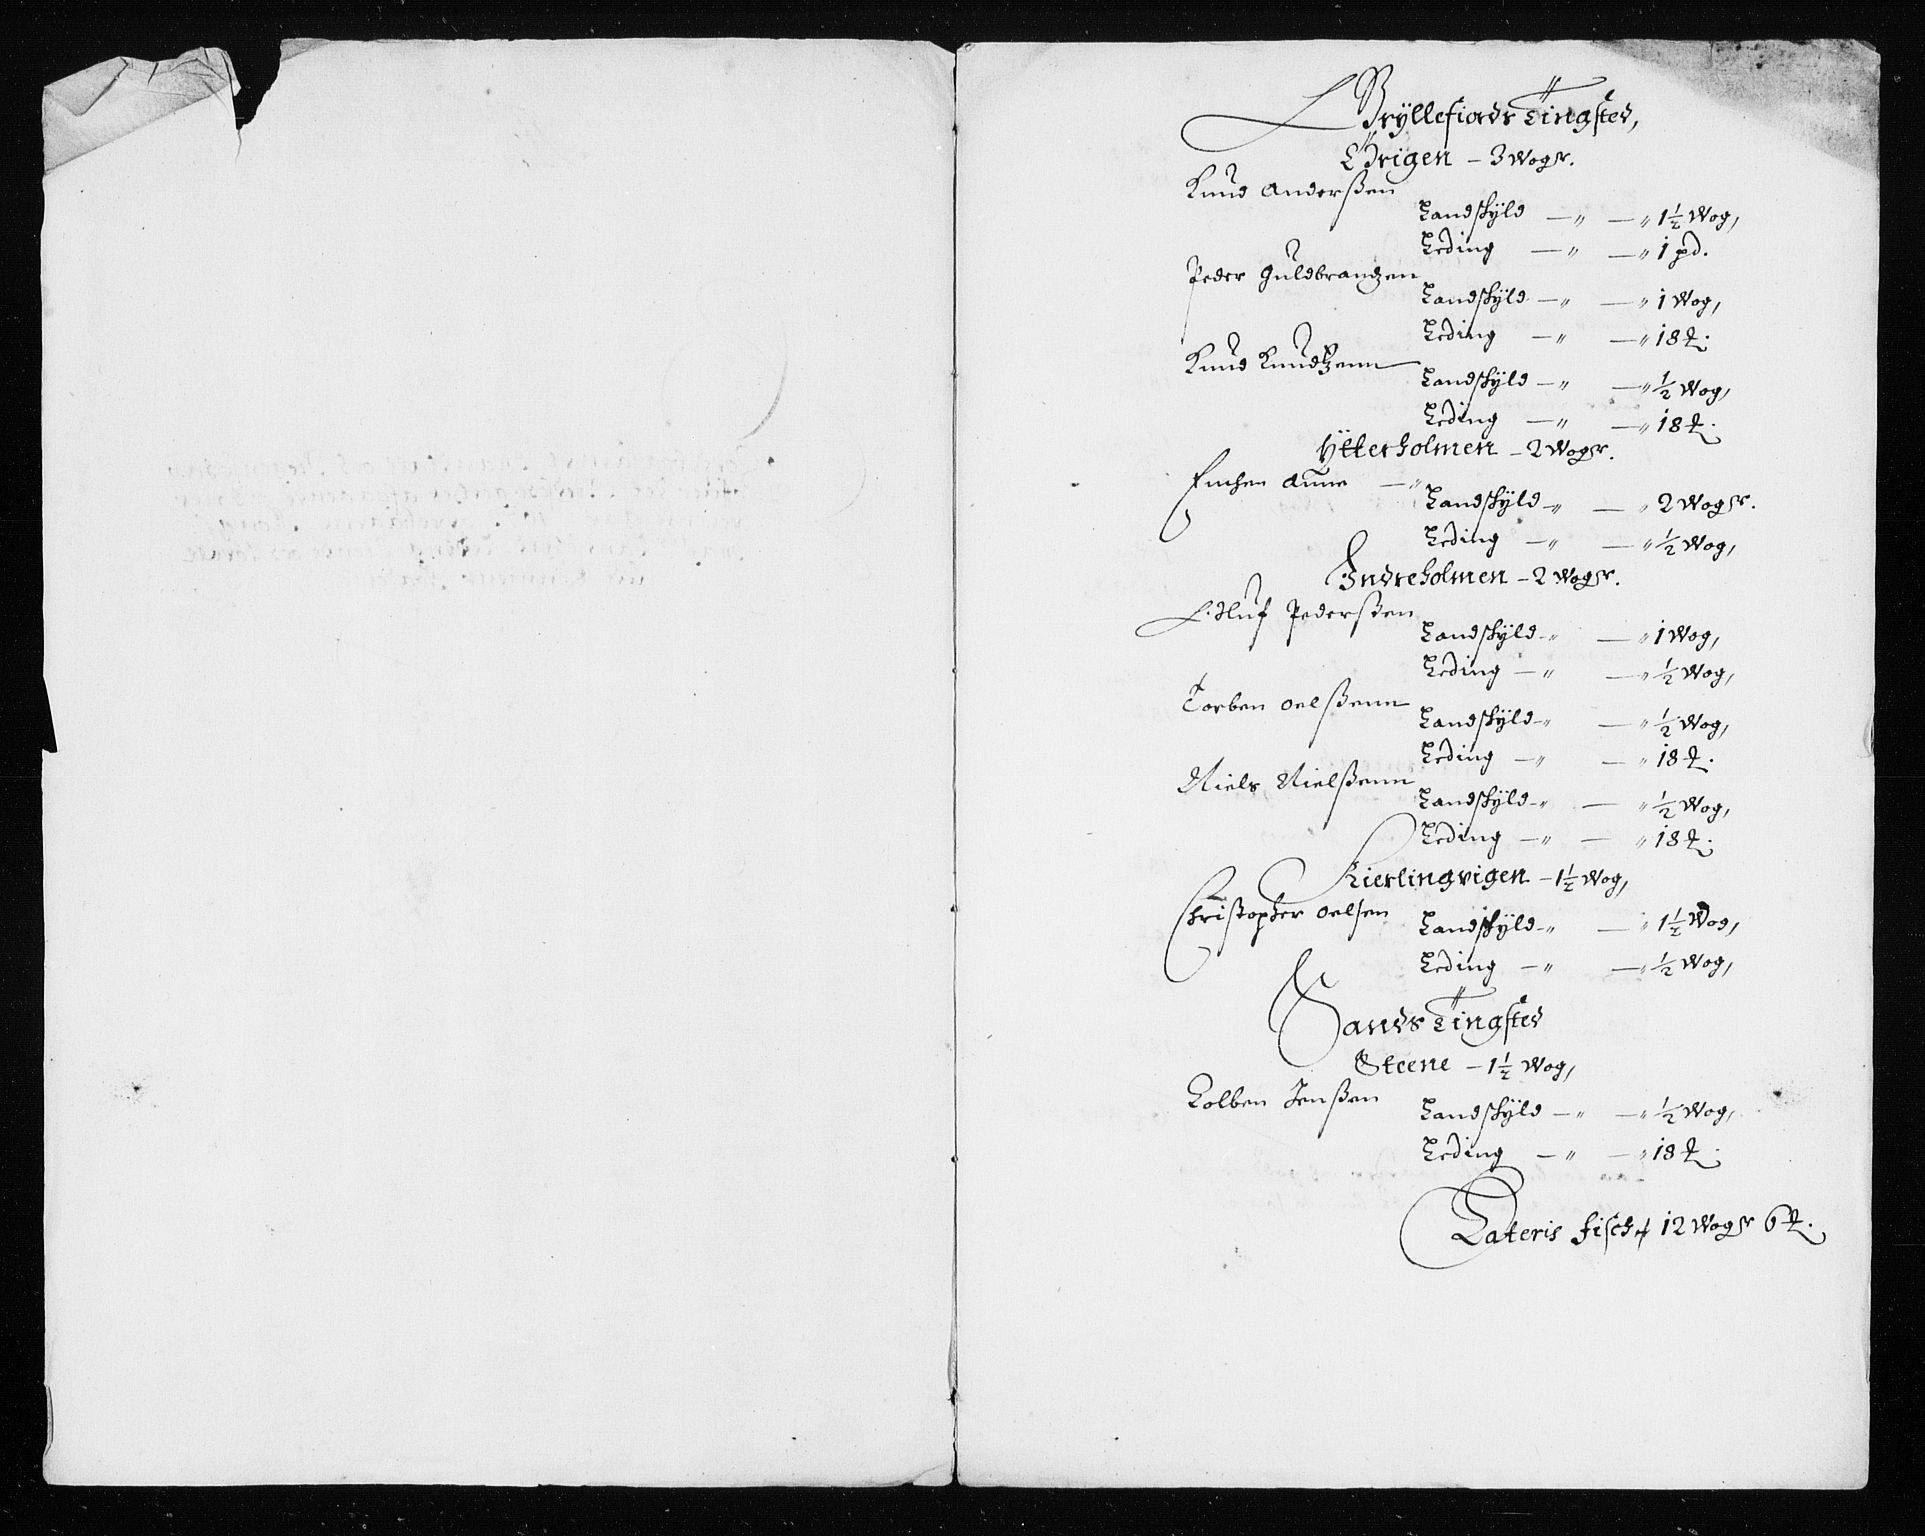 Gryllefiords Tingsted,
Ørigen - 3 Wogr.
Knud Anderßen
Landskÿld — „ — „ 1½ Wog,
Leding — „ — „ 1 pd.
Peder Guldbrandzen
Landskÿld — „ — „ 1 Wog,
Leding — „ — „ 18 ℔.
Knud Knudtzenn
Landskÿld — „ — „ ½ Wog,
Leding — „ — „ 18 ℔.
Ÿtterholmen - 2 Wogr.
Enchen Anne — „
Landskÿld — „ — „ 2 Wogr.
Leding — „ — „ ½ Wog,
Indreholmen - 2 Wogr.
Oluf Pederßen
Landskÿld — „ — „ 1 Wog,
Leding — „ — „ ½ Wog,
Torben Oelßenn
Landskÿld — „ — „ ½ Wog,
Leding — „ — „ 18 ℔.
Niels Nielßenn
Landskÿld — „ — „ ½ Wog,
Leding — „ — „ 18 ℔.
Kierlingvigen - 1½ Wog,
Christopher Oelsen
Landskÿld — „ — „ 1½ Wog,
Leding — „ — „ ½ Wog,
Sands Tingsted
Steene - 1½ Wog,
Colben Jenßen
Landskÿld — „ — „ ½ Wog,
Leding — „ — „ 18 ℔.
Lateris fisch 12 Wogr 6 ℔.